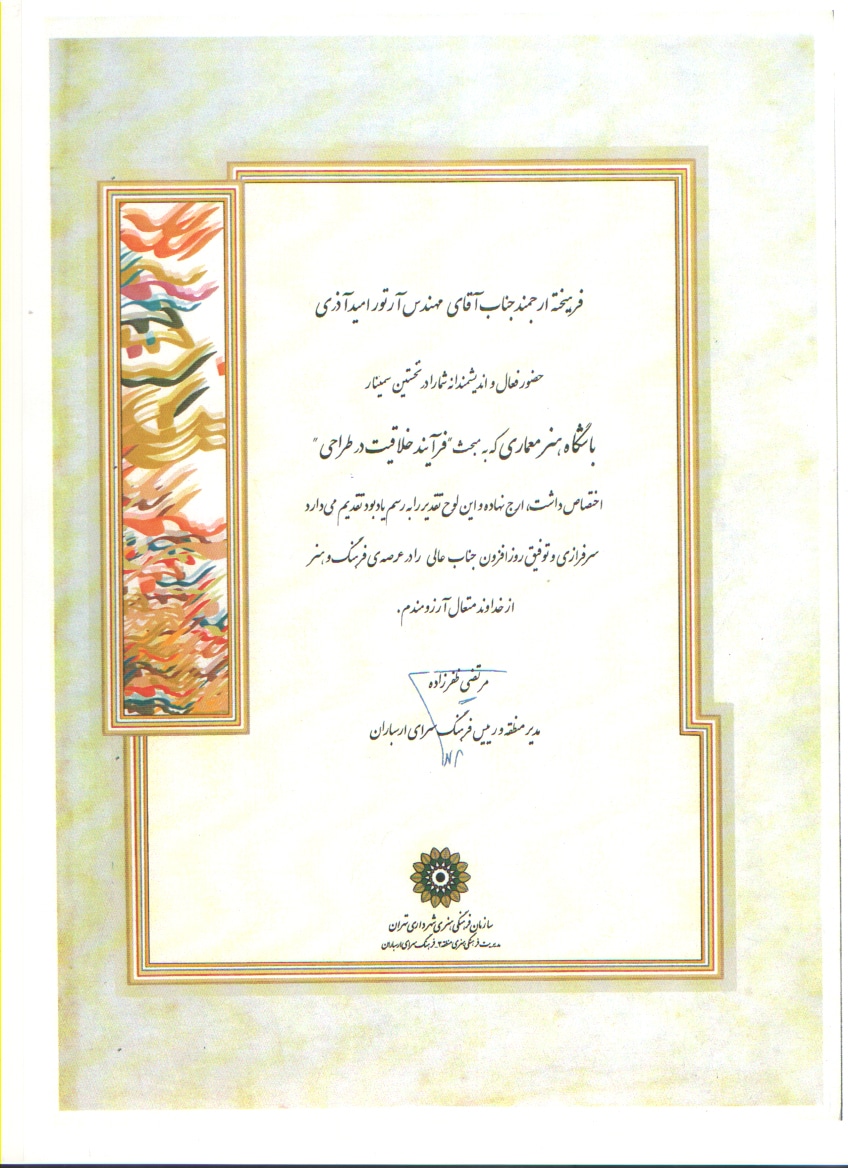 فرهیخته ارجمند جناب آقای مهندس آرتور امید آذری
حضور فعال و اندیشمندانه شما را در نخستین سمینار
باشگاه هنر معماری که به مبحث "فرآیند خلاقیت در طراحی"
اختصاص داشت، ارج نهاده و این لوح تقدیر را به رسم یادبود تقدیم می دارد
سرفرازی و توفیق روز افزون جناب عالی را در عرصه ی فرهنگ و هنر
از خداوند متعال آرزومندم.
مرتضی ظفرزاده
مدیر منطقه و رییس فرهنگ سرای ارسباران
سازمان فرهنگی هنری شهرداری تهران
مدیریت فرهنگی هنری منطقه ۳ - فرهنگ سرای ارسباران